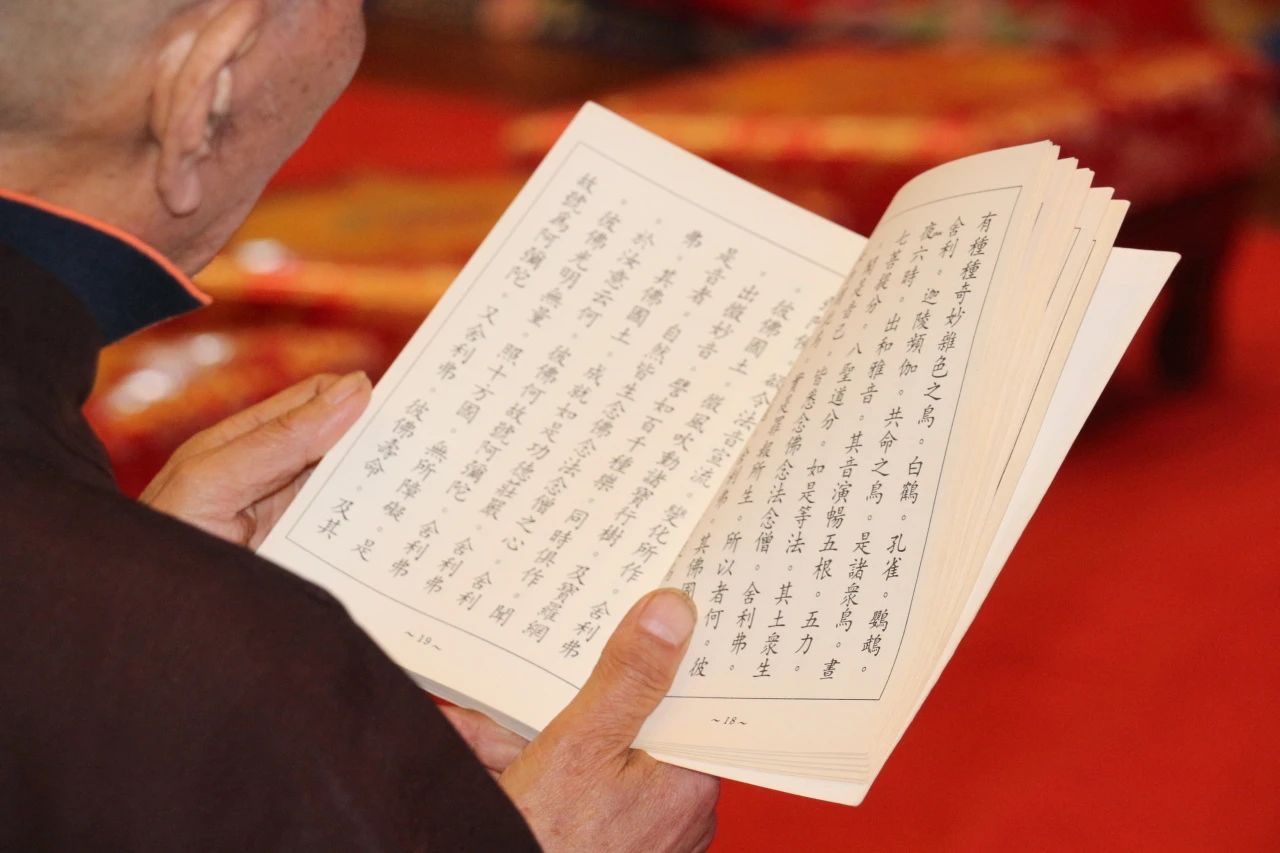 有種種奇妙雜色之鳥。白鶴。孔雀。鸚鵡。
舍利。迦陵頻伽。共命之鳥。是諸衆鳥。晝
夜六時。出和雅音。其音演暢五根。五力。
七菩提分。八聖道分。如是等法。其土衆生
聞是音已。皆悉念佛念法念僧。舍利弗。
報所生。所以者何。彼
其佛國
~18~
令法音宣流。變化所作。舍利弗
。彼佛國土。微風吹動諸寶行樹。及寶羅網
出微妙音。譬如百千種樂。同時俱作。聞
是音者。自然皆生念佛念法念僧之心。舍利
弗。其佛國土。成就如是功德莊嚴。舍利弗
。於汝意云何。彼佛何故號阿彌陀。舍利弗
。彼佛光明無量。照十方國。無所障礙。是
故號為阿彌陀。又舍利弗。彼佛壽命。及其
~19~